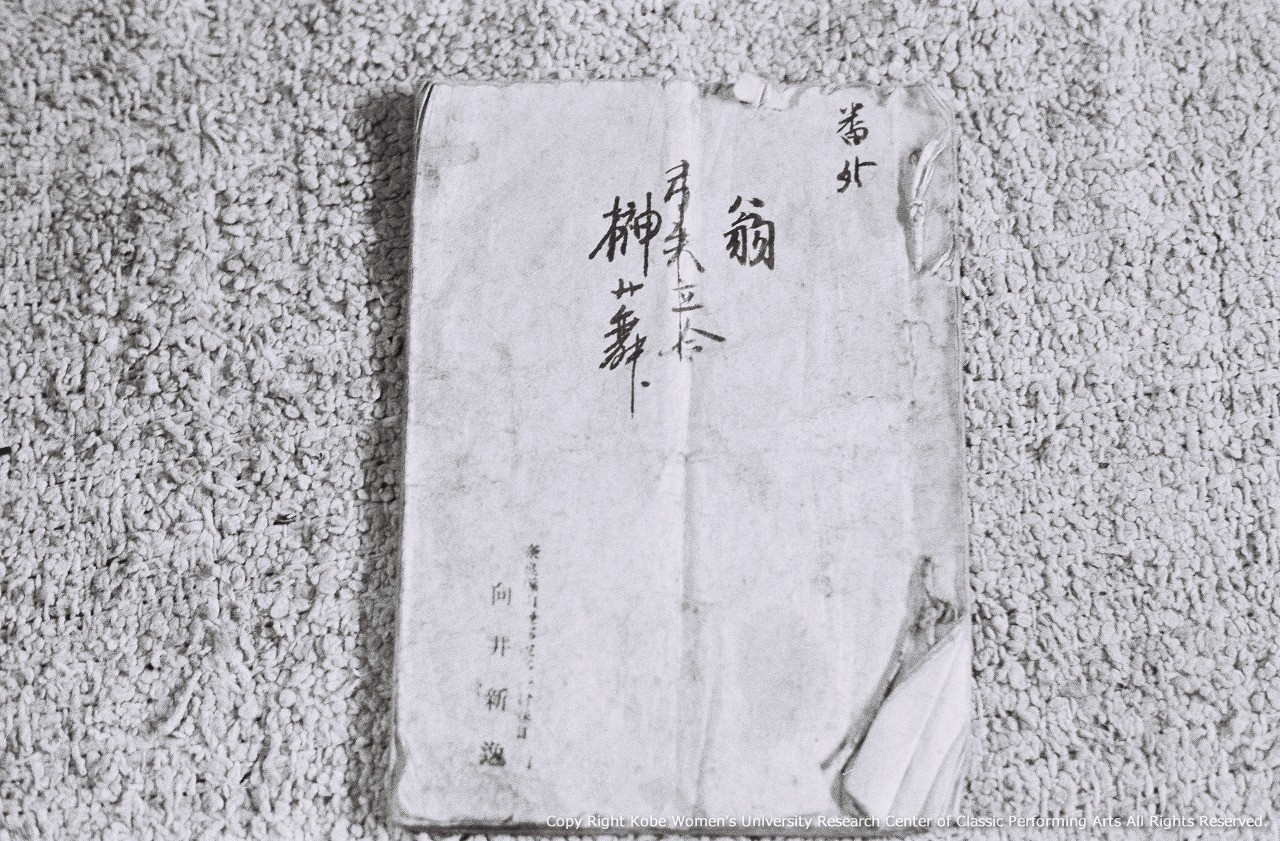 番外
翁
弓矢立合
榊舞
向井新逸
Copy Right Kobe Women's University Research Center of Classic Performing Arts All Rights Reserved.